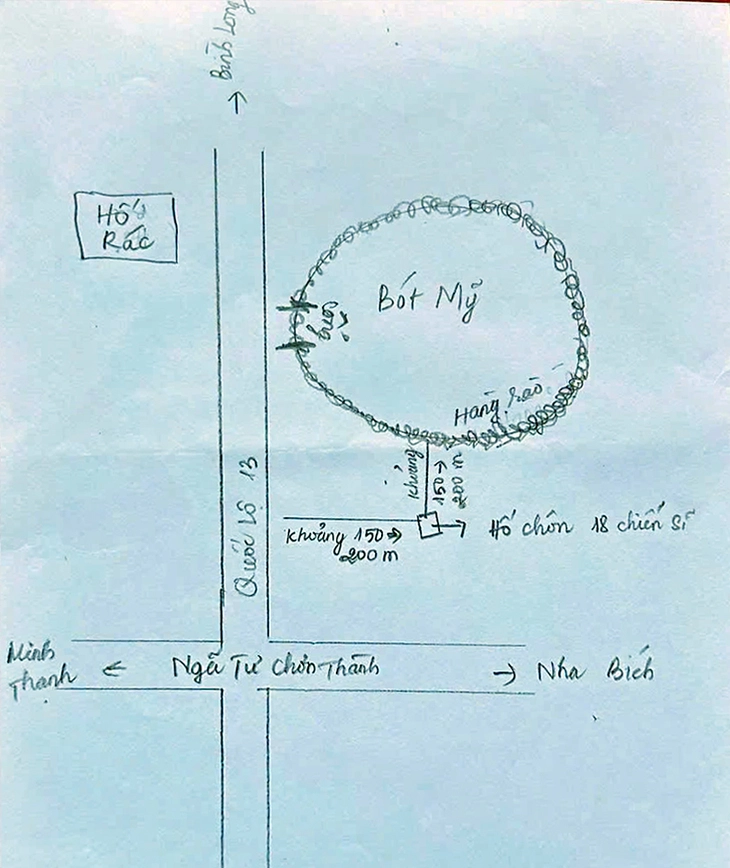 Bình Long
Hố
Rác
Bót Mỹ
Cổng
Hàng rào
Khoảng
150 → 200 m
Quốc Lộ 13
Khoảng 150 →
200 m
Hố chôn 18 chiến sĩ
Minh
Thạnh
Ngã Tư Chơn Thành
Nha Bích